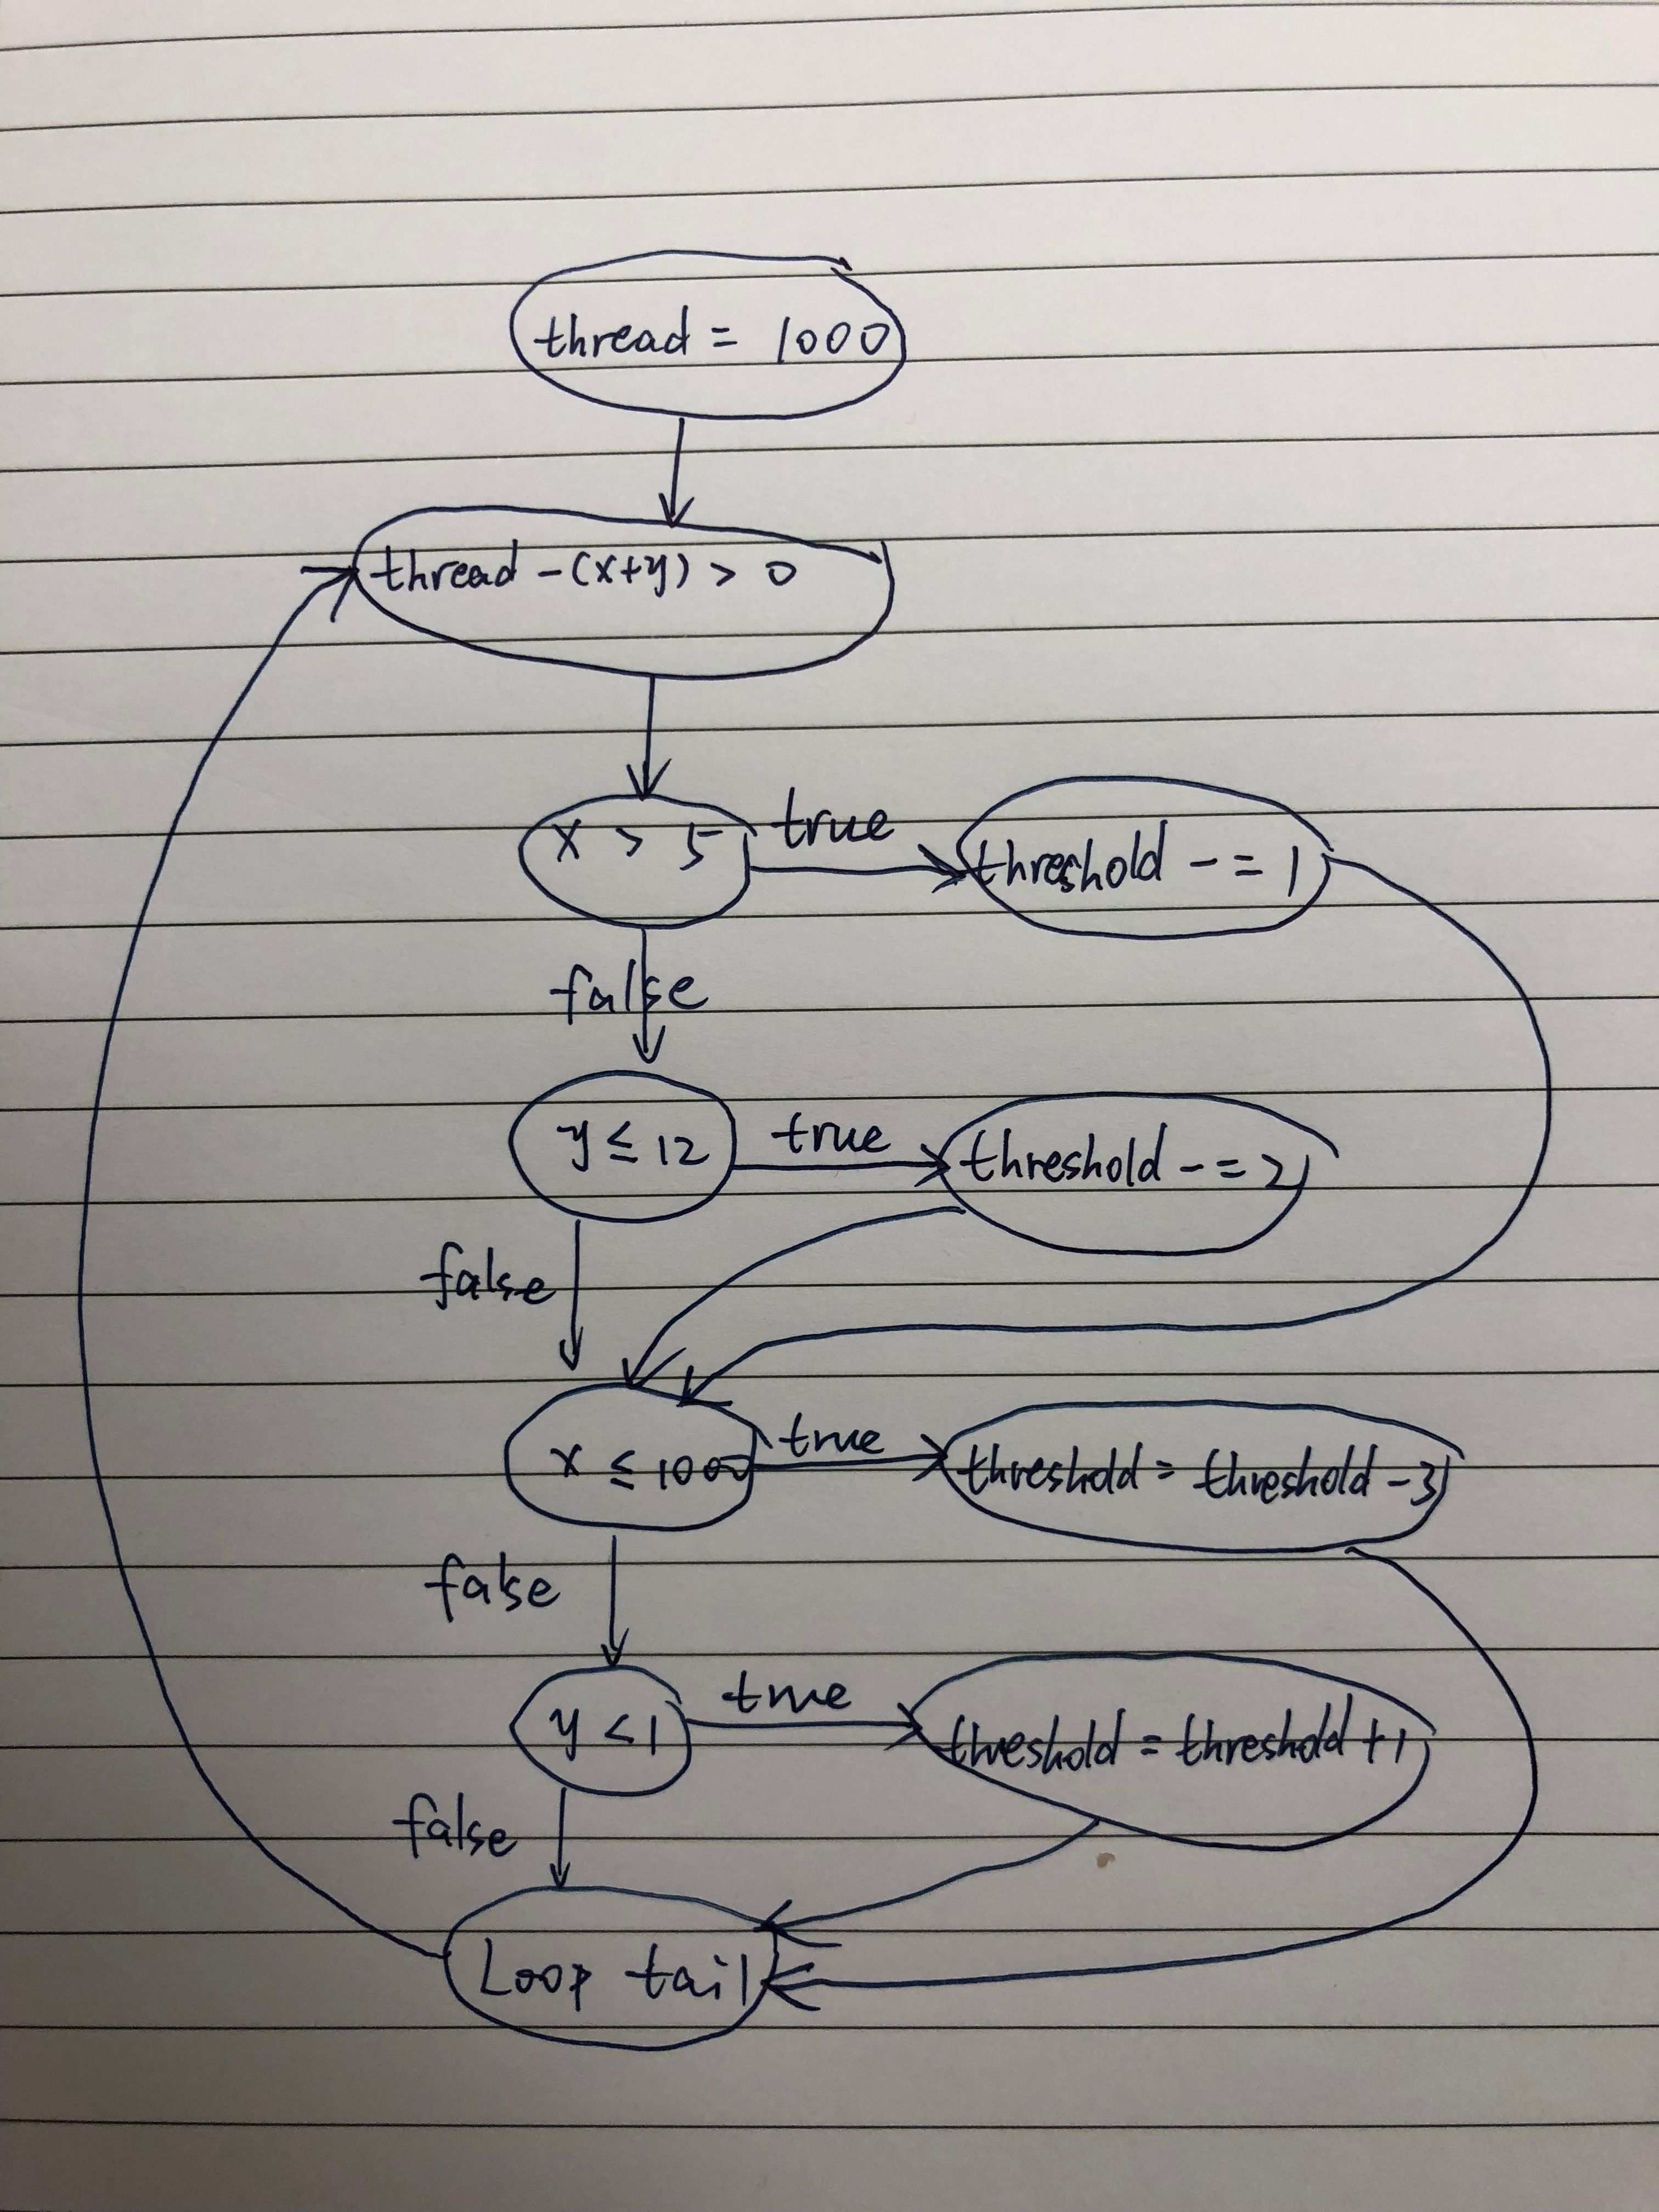 thread = 1000
thread - (x+y) > 0
x > 5
true
threshold -= 1
false
y ≤ 12
true
threshold -= 2
false
x ≤ 1000
true
threshold = threshold - 3
false
y < 1
true
threshold = threshold + 1
false
Loop tail